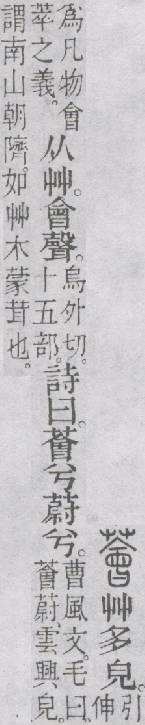 薈艸多皃。引伸
爲凡物會萃之義。从艸。會聲。烏外切。十五部。詩曰。薈兮蔚兮。曹風文。毛曰。薈蔚、雲興皃。
謂南山朝隮。如艸木蒙茸也。